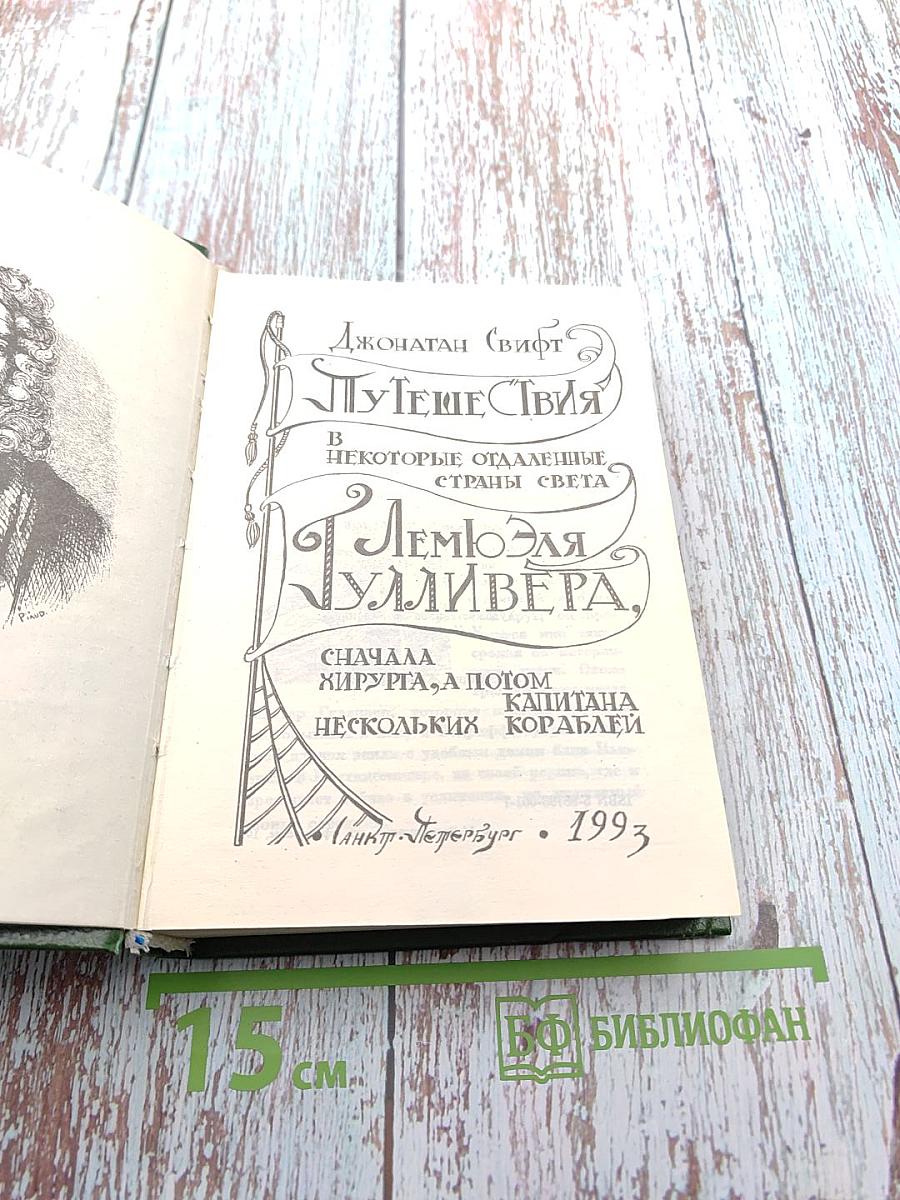 Джонатан Свифт
Путешествия
в
некоторые отдаленные
страны света
Лемюэля
Гулливера,
сначала
хирурга, а потом
капитана
нескольких кораблей
• Санкт-Петербург • 1993
15 см
БФ БИБЛИОФАН